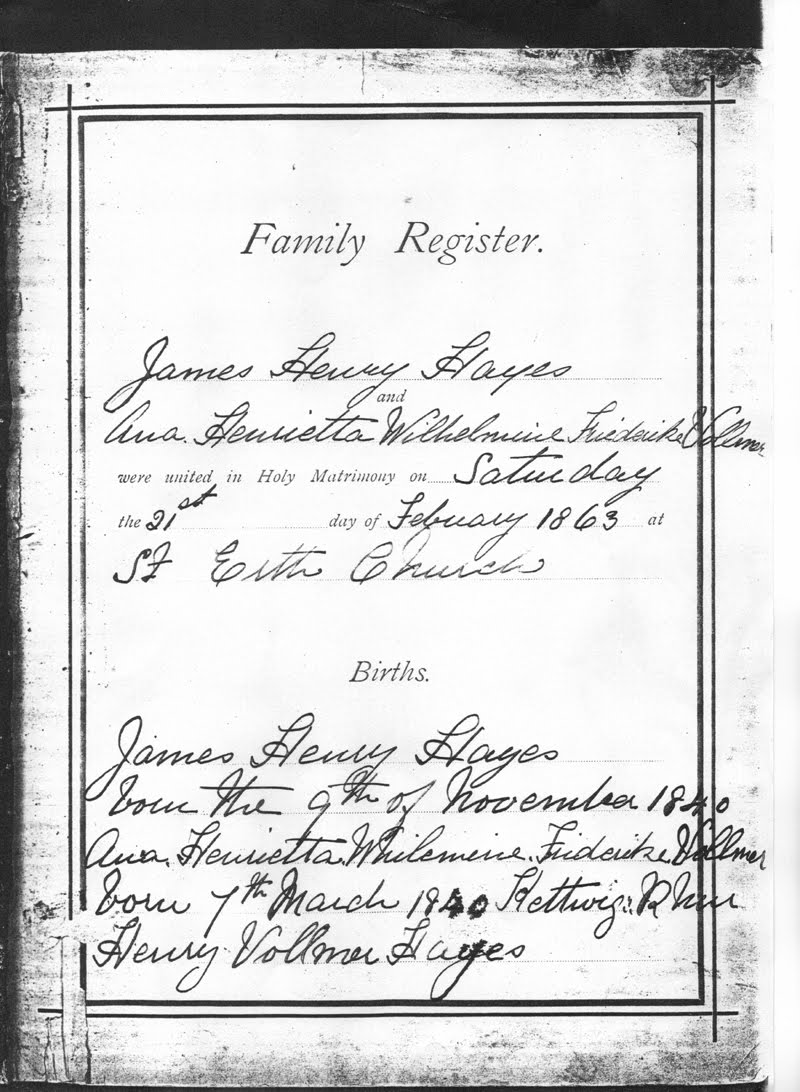 Family Register.
James Henry Hayes
and
Ana. Henrietta Wilhelmine Friderike Vollmer
were united in Holy Matrimony on Saturday
the 21st day of February 1863 at
St Erth Church
Births.
James Henry Hayes
born the 9th of November 1840
Ana. Henrietta. Whilemine. Friderike Vollmer
born 7th March 1840 Kettwig
Henry Vollmer Hayes